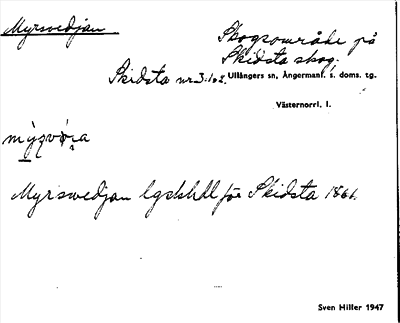 Myrsvedjan
Skogsområde på
Skidsta skog.
Skidsta nr 3:1o2. Ullångers sn, Ångermanl. s. doms. tg.
Västernorrl. l.
Myrswedjan lgskhdl för Skidsta 1861.
Sven Hiller 1947